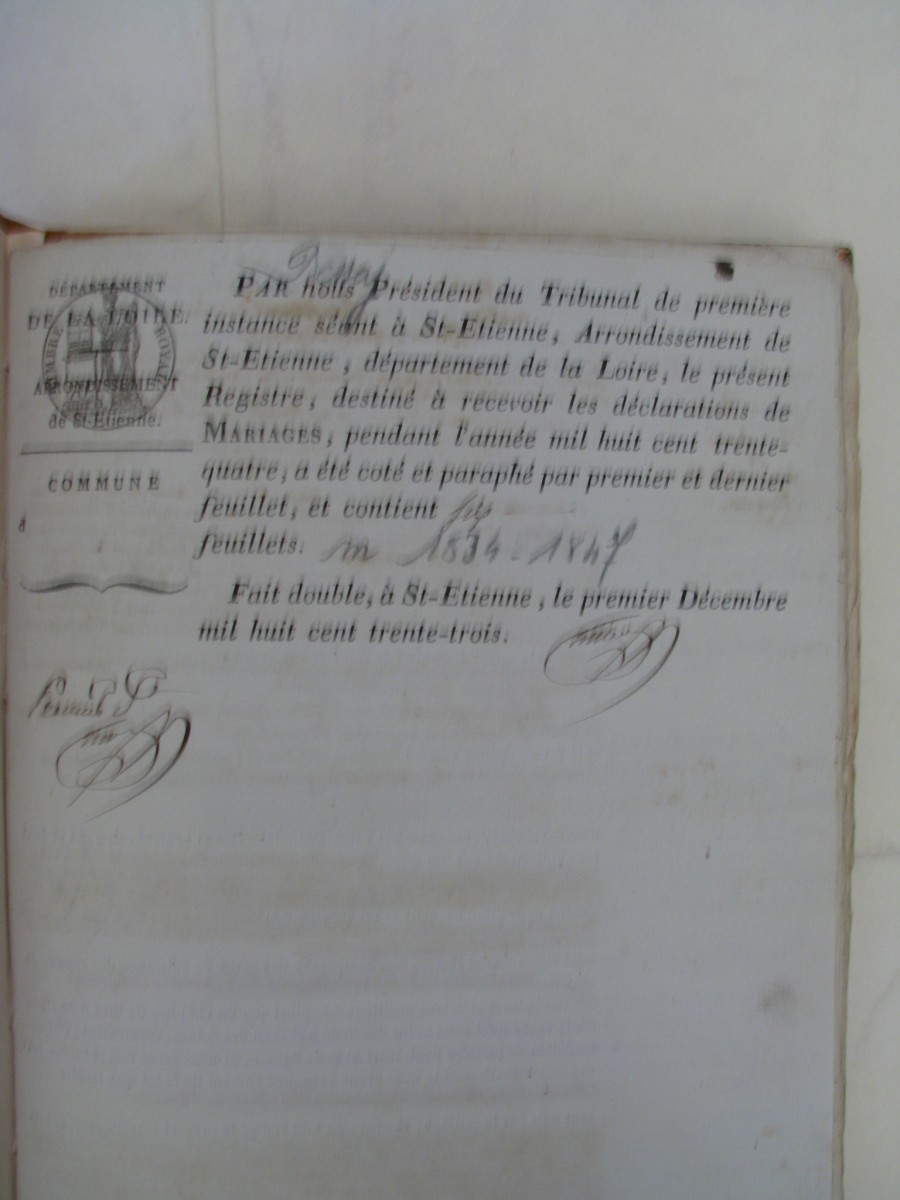 DÉPARTEMENT
DE LA LOIRE.
TIMBRE ROYAL
ARRONDISSEMENT
de St-Etienne.
COMMUNE
d
PAR nous Président du Tribunal de première
instance séant à St-Etienne, Arrondissement de
St-Etienne, département de la Loire, le présent
Registre, destiné à recevoir les déclarations de
MARIAGES, pendant l'année mil huit cent trente-
quatre, a été coté et paraphé par premier et dernier
feuillet, et contient six
feuillets. m 1834-1847
Fait double, à St-Etienne, le premier Décembre
mil huit cent trente-trois.